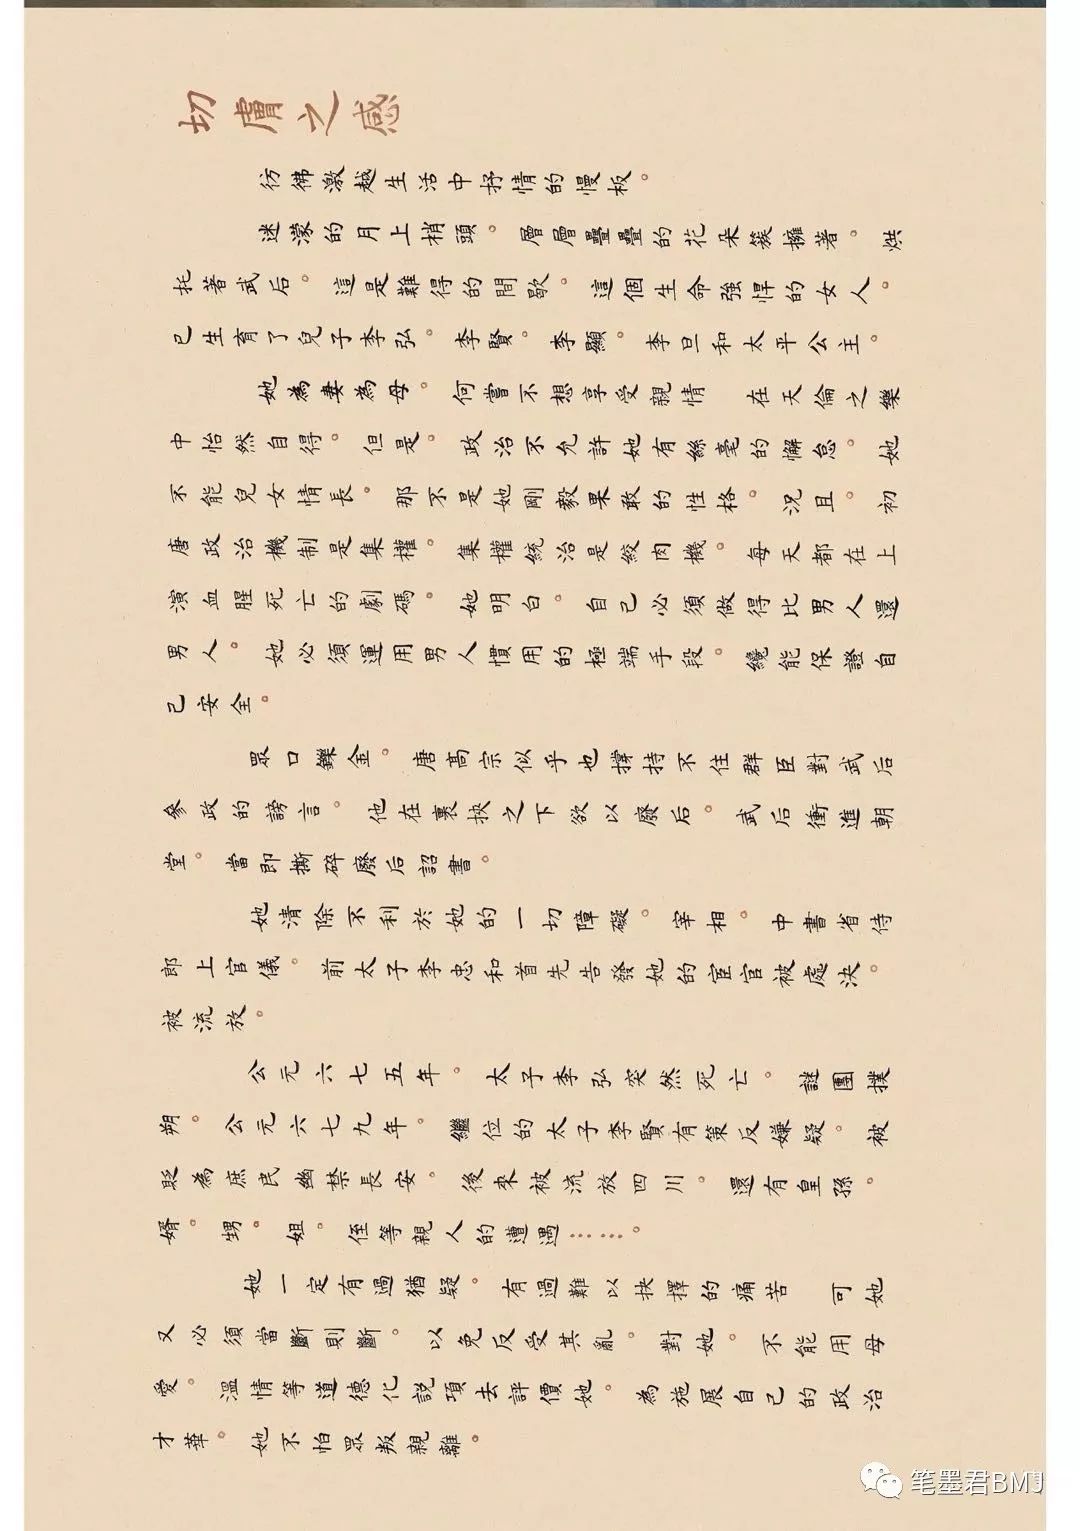 切膚之感
彷彿激越生活中抒情的慢板。
迷濛的月上梢頭。層層疊疊的花朵簇擁著。烘
托著武后。這是難得的間歇。這個生命強悍的女人。
已生育了兒子李弘。李賢。李顯。李旦和太平公主。
她為妻為母。何嘗不想享受親情 在天倫之樂
中怡然自得。但是。政治不允許她有絲毫的懈怠。她
不能兒女情長。那不是她剛毅果敢的性格。況且。初
唐政治機制是集權。集權統治是絞肉機。每天都在上
演血腥死亡的劇碼。她明白。自己必須做得比男人還
男人。她必須運用男人慣用的極端手段。纔能保證自
己安全。
眾口鑠金。唐高宗似乎也撐持不住群臣對武后
參政的謗言。他在裹挾之下欲以廢后。武后衝進朝
堂。當即撕碎廢后詔書。
她清除不利於她的一切障礙。宰相。中書省侍
郎上官儀。前太子李忠和首先告發她的宦官被處決。
被流放。
公元六七五年。太子李弘突然死亡。謎團撲
朔。公元六七九年。繼位的太子李賢有策反嫌疑。被
貶為庶民幽禁長安。後來被流放四川。還有皇孫。
婿。甥。姐。侄等親人的遭遇……。
她一定有過猶疑。有過難以抉擇的痛苦 可她
又必須當斷則斷。以免反受其亂。對她。不能用母
愛。溫情等道德化說項去評價她。為施展自己的政治
才華。她不怕眾叛親離。
笔墨君BMJ